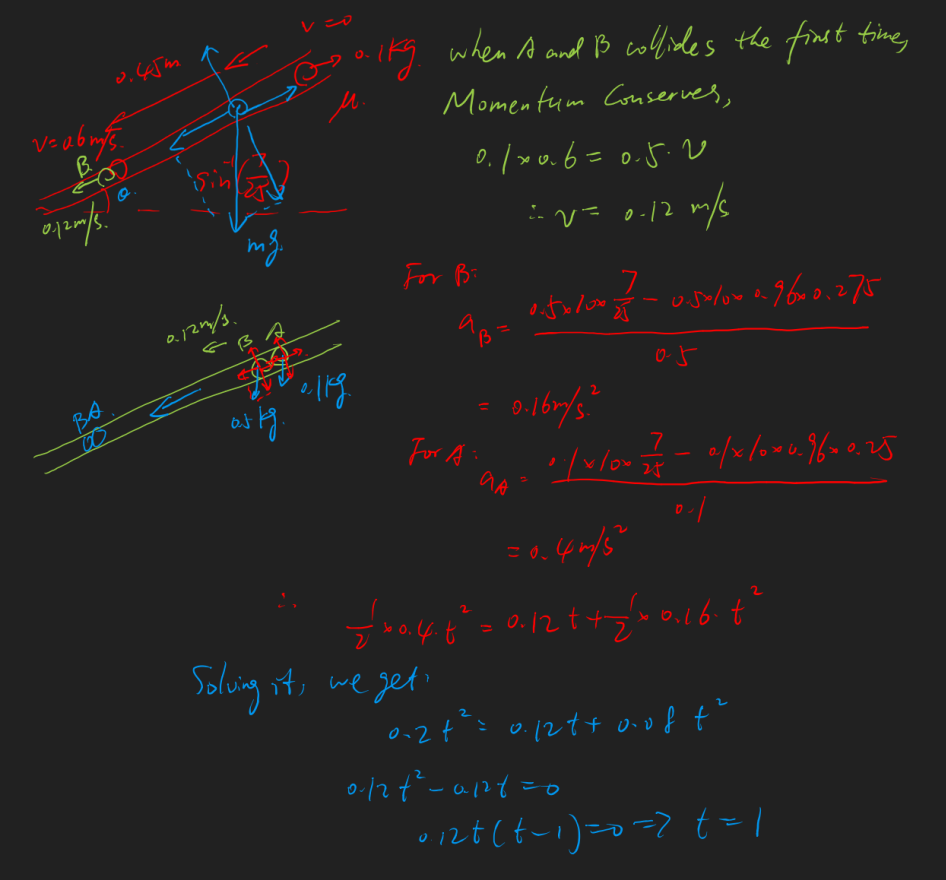 v=0
0.45m
0.1kg
μ.
v=0.6m/s.
B.
θ.
sin⁻¹(7/25)
0.12m/s.
mg.
when A and B collides the first time,
Momentum Conserves,
0.1×0.6 = 0.5·v
∴ v = 0.12 m/s
For B:
a_B = (0.5×10×7/25 − 0.5×10×0.96×0.275)/0.5
= 0.16m/s².
For A:
a_A = (0.1×10×7/25 − 0.1×10×0.96×0.25)/0.1
= 0.4m/s²
0.12m/s.
B A
0.1kg.
0.5kg.
B A.
∴ 1/2×0.4·t² = 0.12t+1/2×0.16·t²
Solving it, we get,
0.2t² = 0.12t+0.08t²
0.12t²−0.12t=0
0.12t(t−1)=0 => t=1